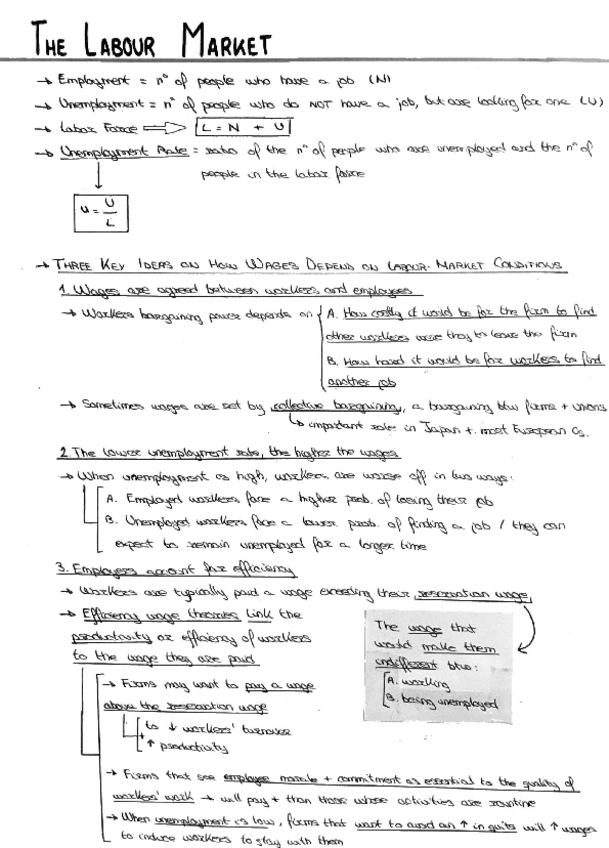 THE LABOUR MARKET
→ Employment = n° of people who have a job (N)
→ Unemployment = n° of people who do NOT have a job, but are looking for one (U)
→ Labor Force ⇒ L = N + U
→ Unemployment Rate = ratio of the n° of people who are unemployed and the n° of
people in the labor force
u = U/L
→ THREE KEY IDEAS ON HOW WAGES DEPEND ON LABOUR-MARKET CONDITIONS
1. Wages are agreed between workers and employees
→ Workers bargaining power depends on
A. How costly it would be for the firm to find
other workers were they to leave the firm
B. How hard it would be for workers to find
another job
→ Sometimes wages are set by collective bargaining, a bargaining btw firms + unions
↳ important roles in Japan + most European Cs.
2. The lower unemployment rate, the higher the wages
→ When unemployment is high, workers are worse off in two ways:
A. Employed workers face a higher prob. of losing their job
B. Unemployed workers face a lower prob. of finding a job / they can
expect to remain unemployed for a longer time
3. Employers account for efficiency
→ Workers are typically paid a wage exceeding their reservation wage,
→ Efficiency wage theories link the
productivity or efficiency of workers
to the wage they are paid
The wage that
would make them
indifferent btw:
A. working
B. being unemployed
→ Firms may want to pay a wage
above the reservation wage
to ↓ workers' turnover
+
↑ productivity
→ Firms that see employee morale + commitment as essential to the quality of
workers' work → will pay + than those whose activities are routine
→ When unemployment is low, firms that want to avoid an ↑ in quits will ↑ wages
to induce workers to stay with them